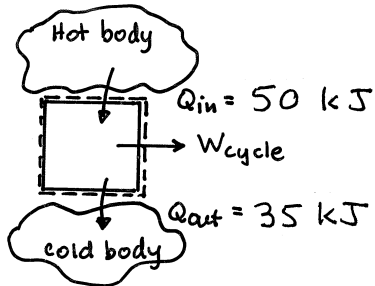 Hot body
Qin = 50 kJ
Wcycle
Qout = 35 kJ
cold body